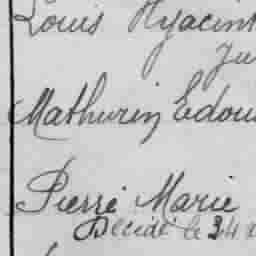 Louis Hyacint
Ju
Mathurin Edou
Pierre Marie
Décidé le 24